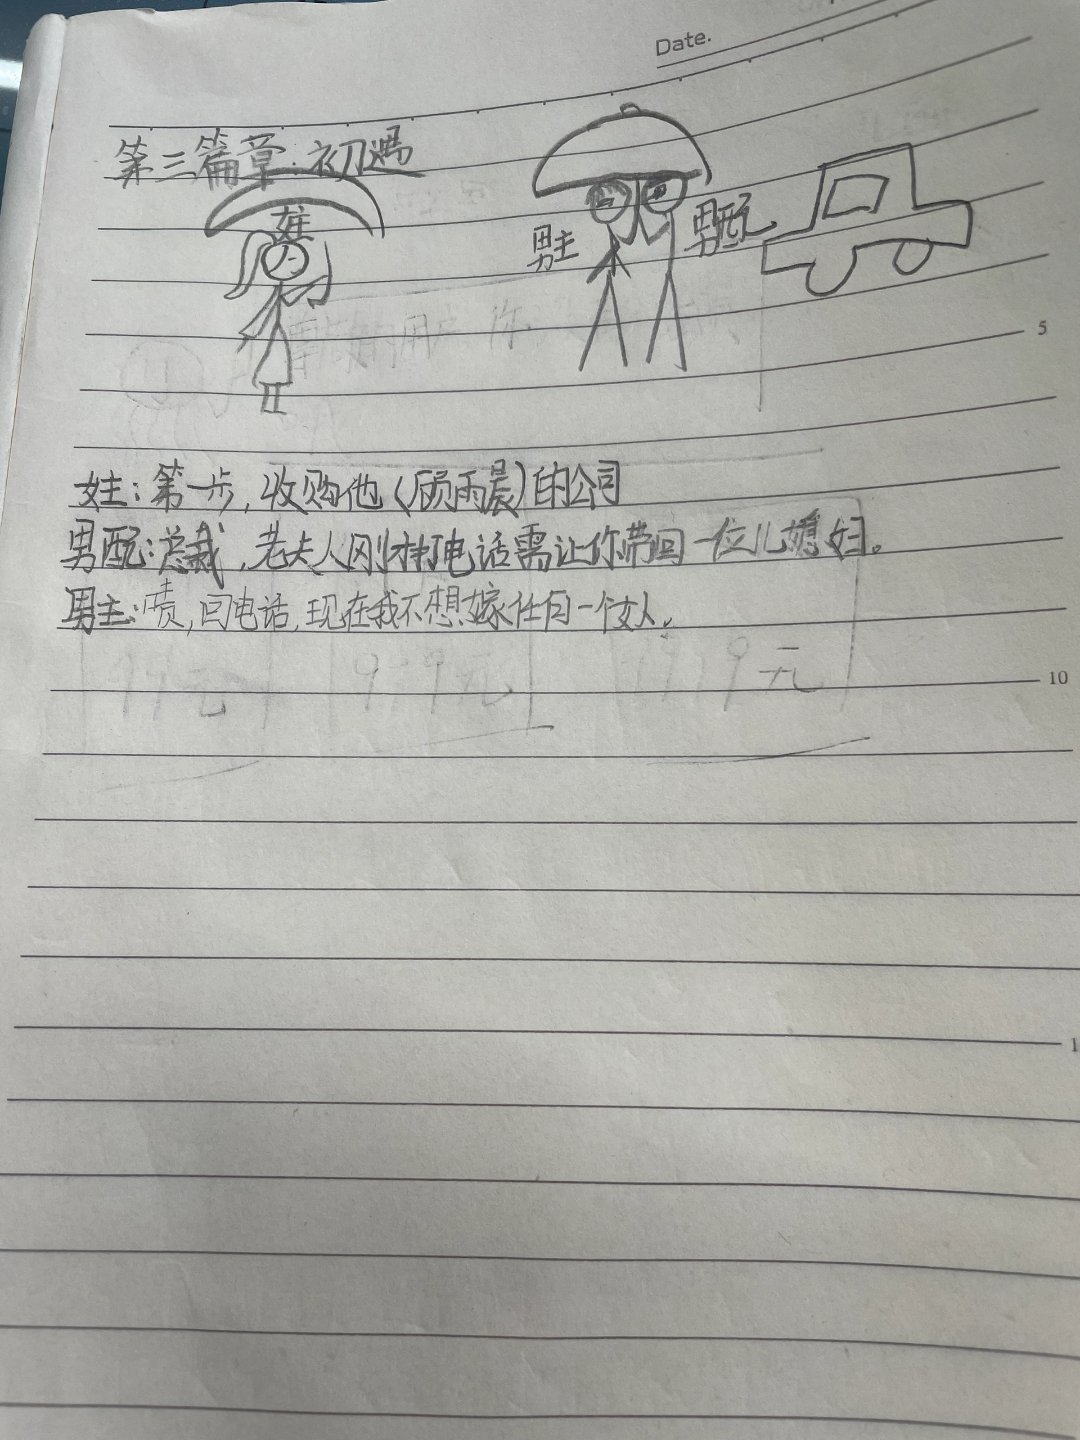 Date.
第三篇章:初遇
女主
男主
男配
5
女主:第一步,收购他(顾雨晨)的公司
男配:总裁,老夫人刚打电话需让你带回一位儿媳妇。
男主:啧,回电话,现在我不想嫁任何一个女人。
99元 9.9元 99.9元
10
1